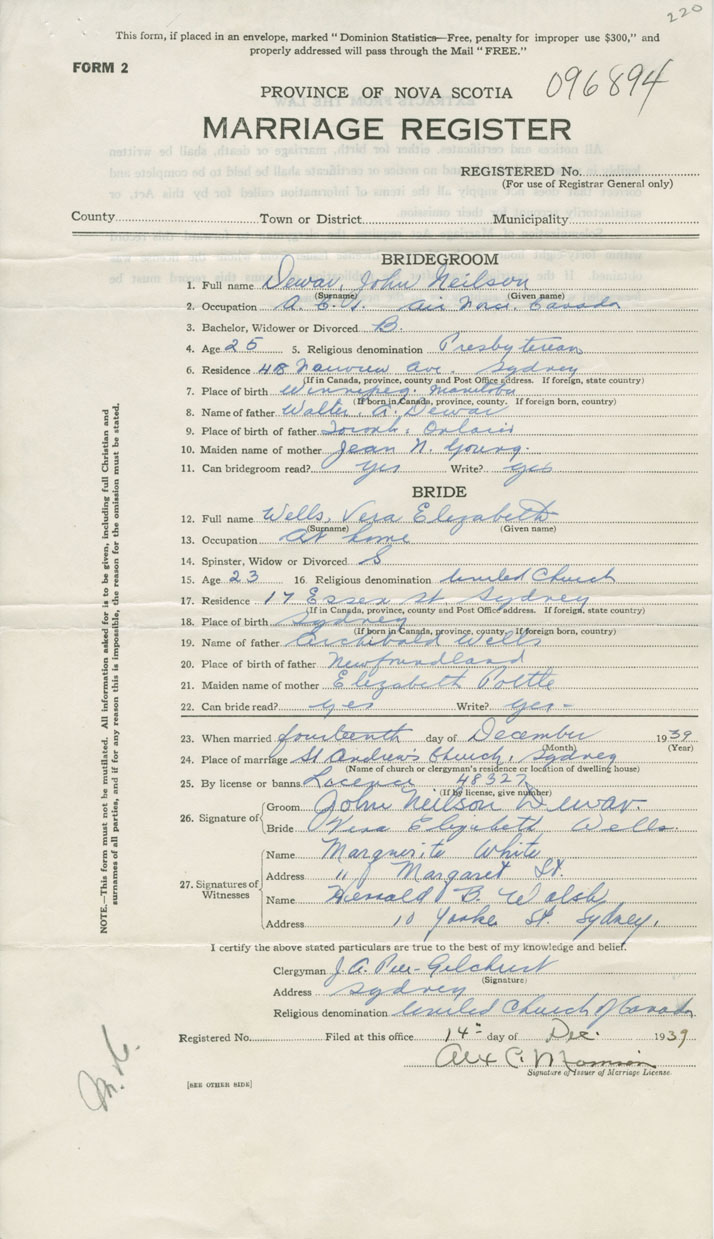 220
This form, if placed in an envelope, marked "Dominion Statistics—Free, penalty for improper use $300," and
properly addressed will pass through the Mail "FREE."
FORM 2
PROVINCE OF NOVA SCOTIA
096894
MARRIAGE REGISTER
REGISTERED No.
(For use of Registrar General only)
County Town or District Municipality
BRIDEGROOM
1. Full name Dewar, John Neilson
(Surname) (Given name)
2. Occupation Canada
3. Bachelor, Widower or Divorced B.
4. Age 25 5. Religious denomination Presbyterian
6. Residence 48 Ave. Sydney
(If in Canada, province, county and Post Office address. If foreign, state country)
7. Place of birth Winnipeg. Manitoba
(If born in Canada, province, county. If foreign born, country)
8. Name of father Walter. A. Dewar
9. Place of birth of father Ontario
10. Maiden name of mother Jean N. Young.
11. Can bridegroom read? yes Write? yes
BRIDE
12. Full name Wells, Vera Elizabeth
(Surname) (Given name)
13. Occupation at home
14. Spinster, Widow or Divorced S
15. Age 23 16. Religious denomination United Church
17. Residence 17 Essex St. Sydney
(If in Canada, province, county and Post Office address. If foreign, state country)
18. Place of birth Sydney
(If born in Canada, province, county. If foreign born, country)
19. Name of father Archibald Wells
20. Place of birth of father Newfoundland
21. Maiden name of mother Elizabeth Pottle
22. Can bride read? yes Write? yes-
23. When married fourteenth day of December 1939
(Month) (Year)
24. Place of marriage St Andrew's Church, Sydney
(Name of church or clergyman's residence or location of dwelling house)
25. By license or banns Licence 48327
(If by license, give number)
26. Signature of Groom John Neilson Dewar.
Bride Vera Elizabeth Wells.
27. Signatures of Witnesses
Name Marguerite White
Address Margaret St.
Name B. Walsh
Address 10 Yorke St. Sydney,
I certify the above stated particulars are true to the best of my knowledge and belief.
Clergyman J. A. Gilchrist
(Signature)
Address Sydney
Religious denomination United Church of Canada
Registered No. Filed at this office 14 day of Dec. 1939
Alex C. Morrison
Signature of Issuer of Marriage License.
[SEE OTHER SIDE]
NOTE.—This form must not be mutilated. All information asked for is to be given, including full Christian and
surnames of all parties, and if for any reason this is impossible, the reason for the omission must be stated.